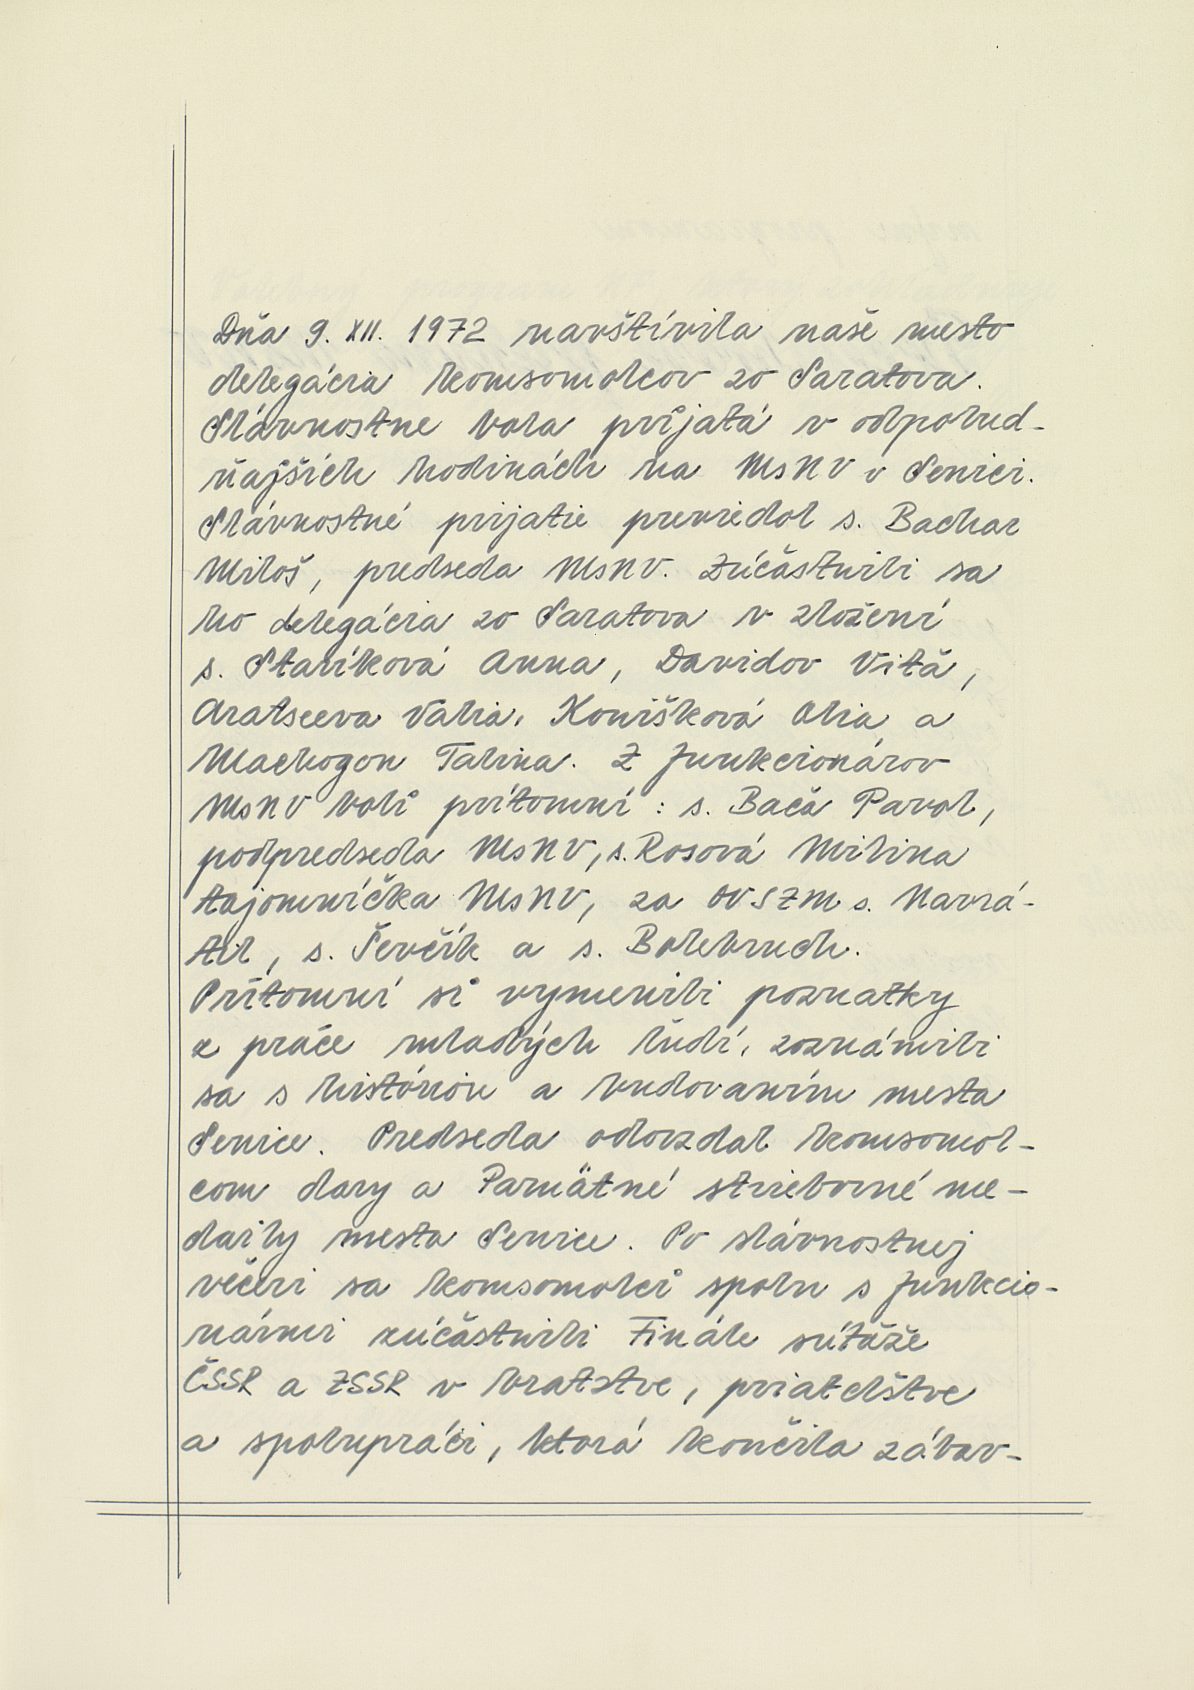 Dňa 9. XII. 1972 navštívila naše mesto
delegácia komsomolcov zo Saratova.
Slávnostne bola prijatá v odpolud-
ňajších hodinách na MsNV v Senici.
Slávnostné prijatie previedol s. Bachar
Miloš, predseda MsNV. Zúčastnili sa
ho delegácia zo Saratova v zložení
s. Staríková Anna, Davidov Viťa,
Aratseeva Valia, Konišková Olia a
Machogon Talina. Z funkcionárov
MsNV boli prítomní: s. Bača Pavol,
podpredseda MsNV, s. Rosová Milina
tajomníčka MsNV, za OV SZM s. Navrá-
til, s. Ševčík a s. Bolebruch.
Prítomní si vymenili poznatky
z práce mladých ľudí, zoznámili
sa s históriou a budovaním mesta
Senice. Predseda odovzdal komsomol-
com dary a Pamätné strieborné me-
daily mesta Senice. Po slávnostnej
večeri sa komsomolci spolu s funkcio-
nármi zúčastnili Finále súťaže
ČSSR a ZSSR v bratstve, priateľstve
a spolupráci, ktorá končila zábav-